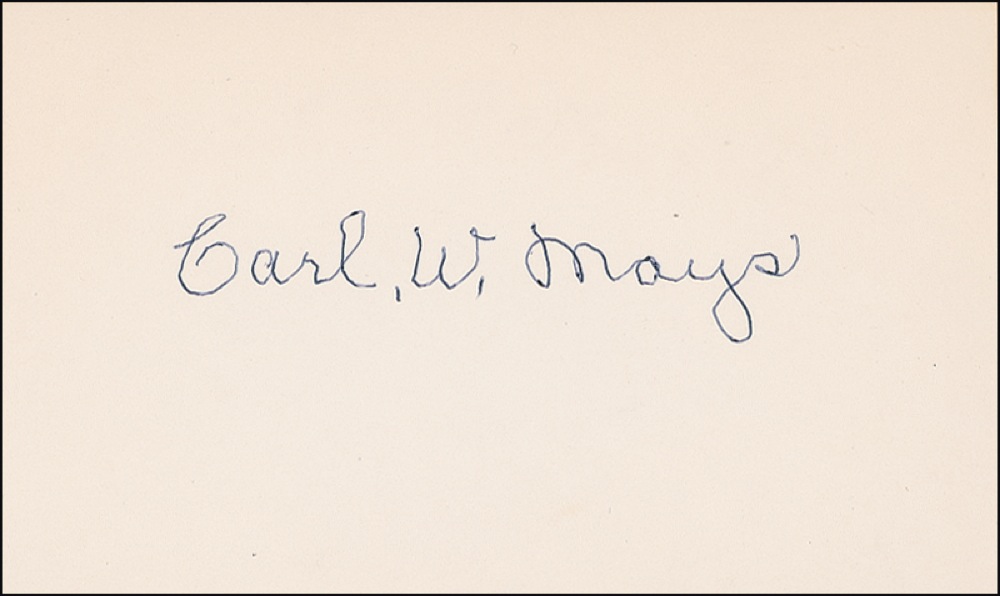 Carl, W, Mays